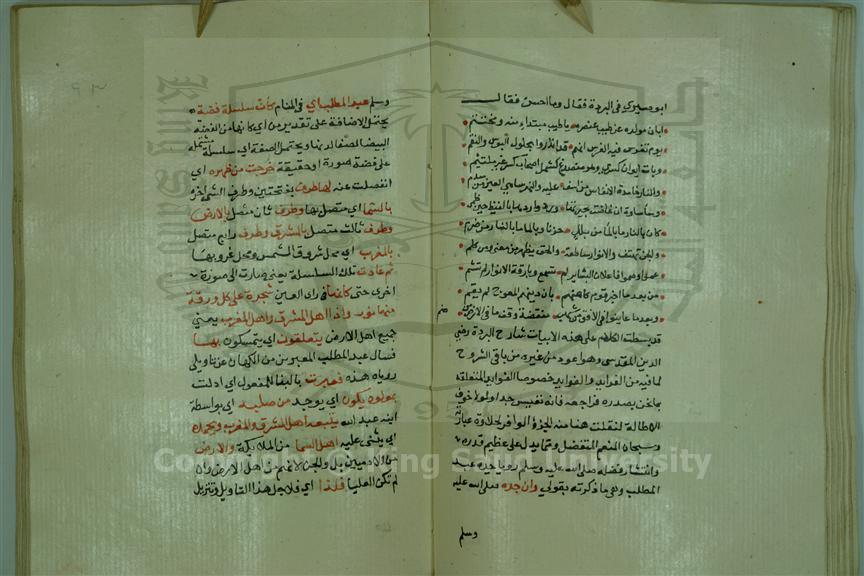 ابوصيري في البردة فقال وما احسن فقال
ابان مولده عن طيب عنصره يا طيب مبتداء منه ومختتم
يوم تفرس فيه الفرس انهم قد انذروا بحلول البوس والنقم
وبات ايوان كسرى وهو منصدع كشمل اصحاب كسرى غير ملتئم
والنار خامدة الانفاس من اسف عليه والنهر ساهي العين من سدم
وساء ساوة ان غاضت بحيرتها ورد واردها بالغيظ حين ظمي
كان بالنار ما بالماء من بلل حزنا وبالماء ما بالنار من ضرم
والجن تهتف والانوار ساطعة والحق يظهر من معنى ومن كلم
عموا وصموا فاعلان البشاير لم تسمع وبارقة الانوار لم تشم
من بعد ما اخبر الاقوام كاهنهم بان دينهم المعوج لم يقم
وبعد ما عاينوا في الافق من شهب منقضة وفق ما في الارض من
صنم
قد بسطت الكلام على هذه الابيات شارح البردة رضي
الدين المقدسي وهو اعود من غيره من باقي الشروح
لما فيه من الفرايد والفوايد خصوصا الفوايد المتعلقة
بما نحن بصدده فراجعه فانه نفيس جدا ولولا خوف
الاطالة لنقلت هنا منه الجزؤ الوافر لحلاوة عبارته
وسبحان المنعم المتفضل ومما يدل على عظيم قدره
وانتشار فضله صلى الله عليه وسلم رويا جده عبد
المطلب وهي ما ذكرته بقولي وان جده صلى الله عليه
وسلم
وسلم عبد المطلب راي في المنام كأن سلسلة فضة
يحتمل الاضافة على تقدير من اي كانها من الفضة
البيضا لصفا لونها ويحتمل الصفة اي سلسلة مشتملة
على فضة صورة او حقيقة خرجت من ظهره اي
انفصلت عنه لها طرف بفتحتين وطرف الشي اخره
بالسما اي متصل بها وطرف ثان متصل بالارض
وطرف ثالث متصل بالمشرق وطرف رابع متصل
بالمغرب اي محل شروق الشمس ومحل غروبها
ثم عادت تلك السلسلة يعني صارت الى صورة
اخرى حتى كأنها في راى العين شجرة على كل ورقة
منها نور واذا اهل المشرق واهل المغرب يعني
جميع اهل الارض يتعلقون اي يتمسكون بها
فسال عبد المطلب المعبرين من الكهان عن تاويل
روياه هذه فعبرت بالبنا للمفعول اي اولت
بمولود يكون اي يوجد من صلبه اي بواسطة
ابنه عبد الله يتبعه اهل المشرق والمغرب ويحمده
اي يثني عليه اهل السما من الملائكة والارض
من الادميين بل والجن لانهم من اهل الارض وان
لم تكن العليا فلذا اي فلاجل هذا التاويل وتنزيل
Copyright © King Saud University